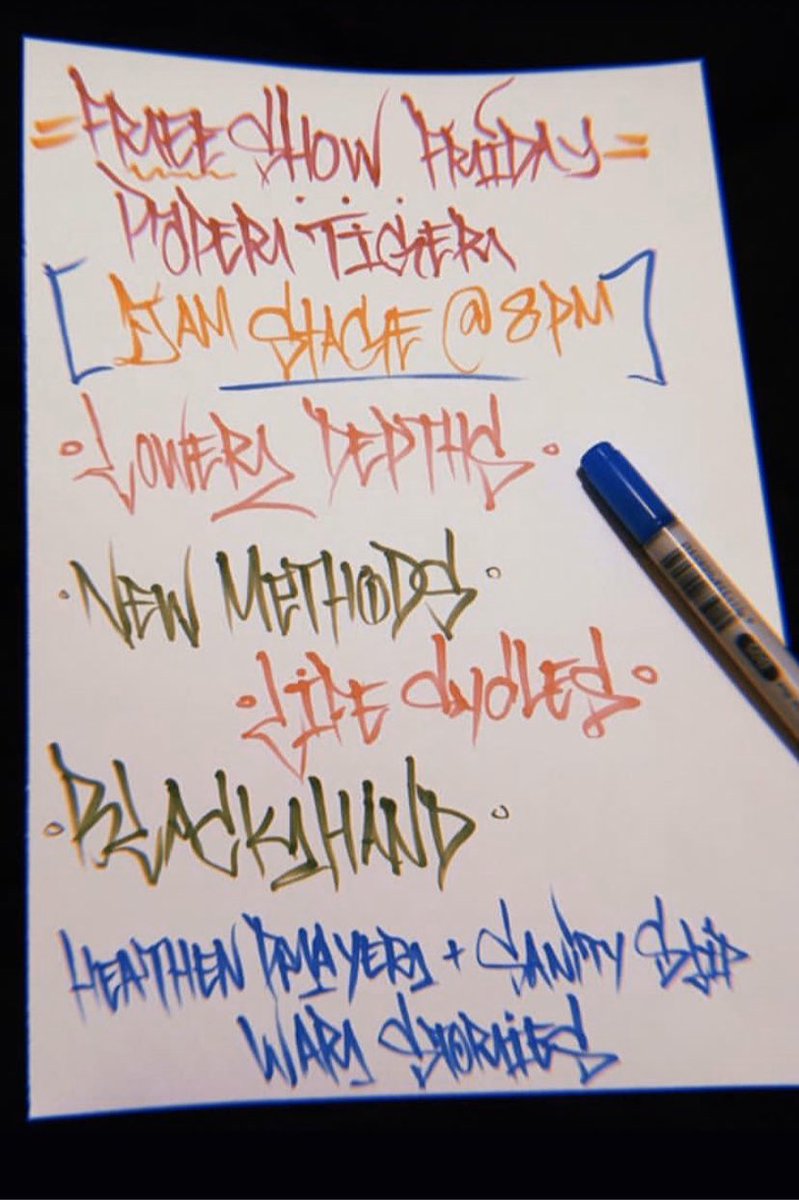 =FREE SHOW FRIDAY=
PAPER TIGER
[JAM STAGE @ 8PM]
·LOWER DEPTHS·
·NEW METHODS·
·LIFE CYCLES·
·BLACK HAND·
HEATHEN PRAYER + SANITY SLIP
WAR STORIES